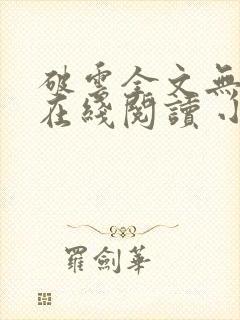 破雲全文無
在綫閱讀 小
羅劍華